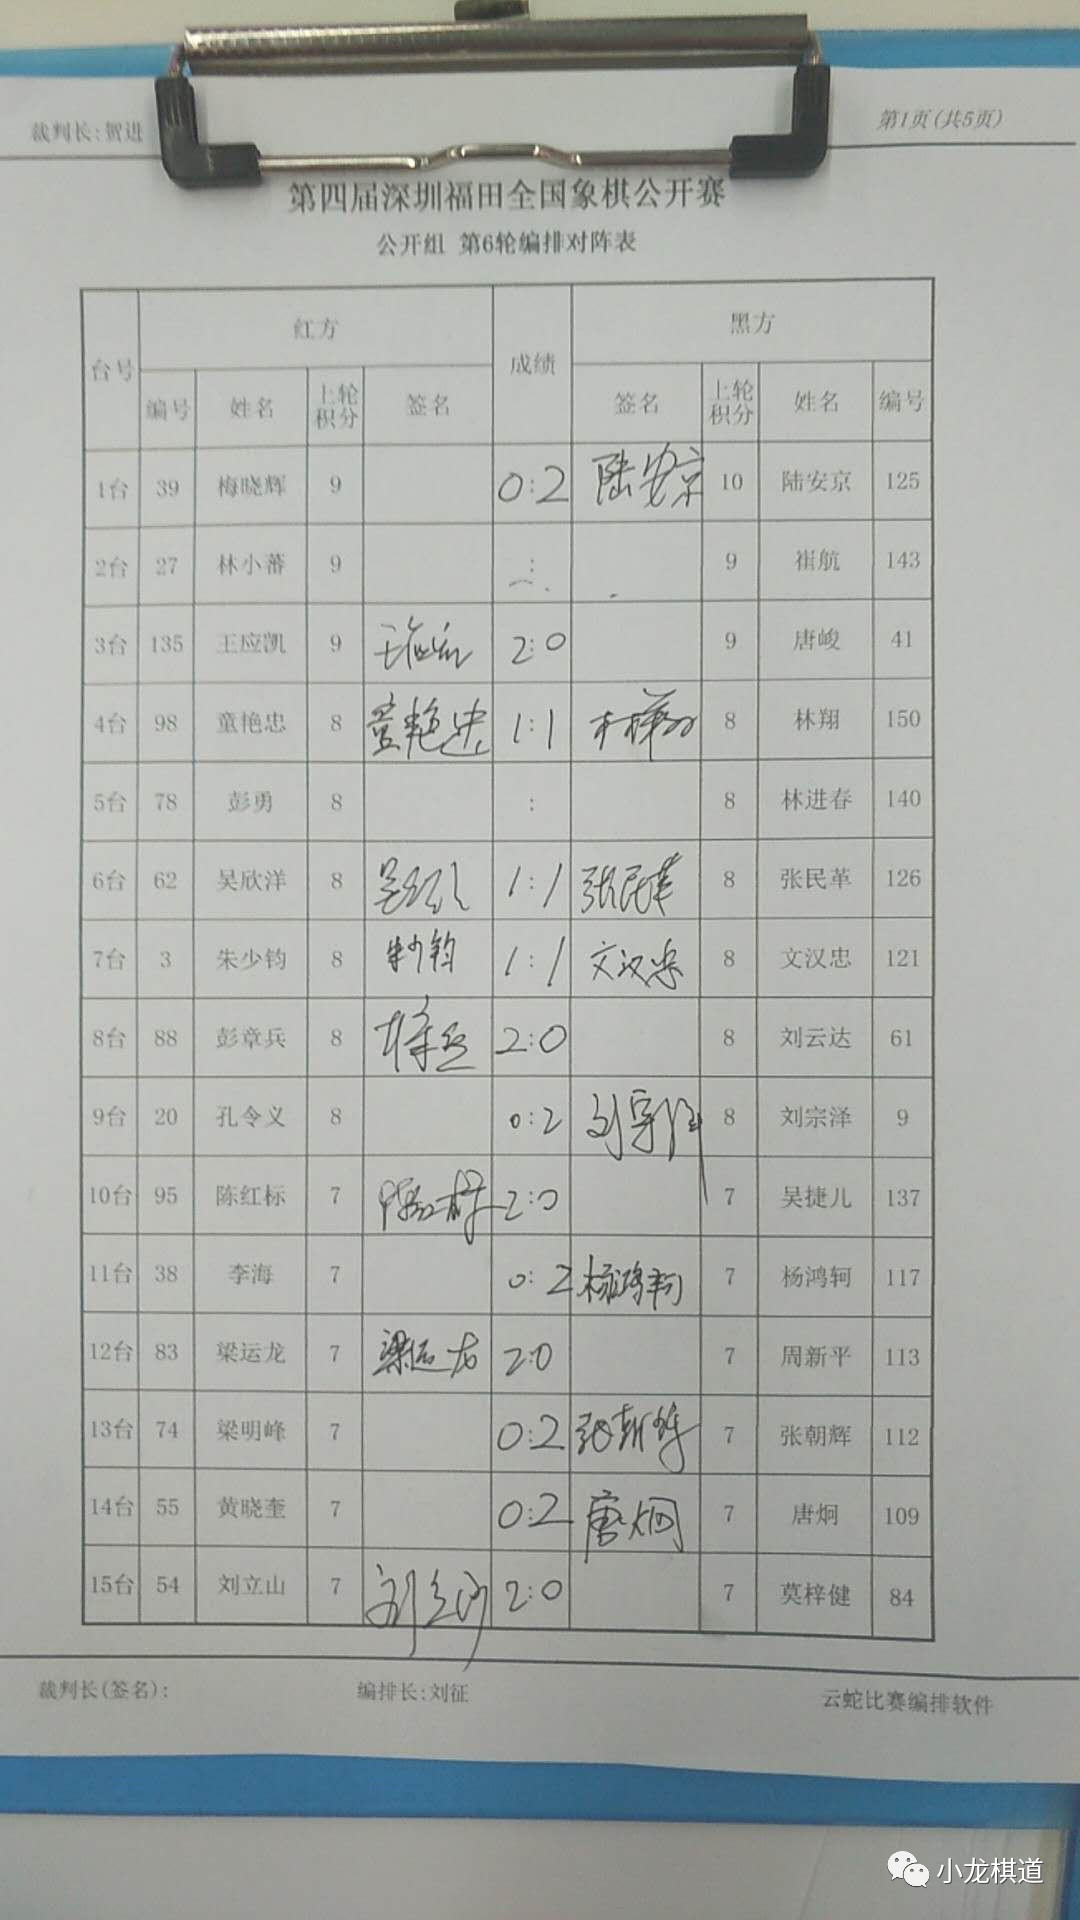 裁判长:贺进
第1页(共5页)
第四届深圳福田全国象棋公开赛
公开组 第6轮编排对阵表
台号 红方 成绩 黑方
编号 姓名 上轮积分 签名 签名 上轮积分 姓名 编号
1台 39 梅晓辉 9 0:2 陆安京 10 陆安京 125
2台 27 林小蕃 9 : 9 崔航 143
3台 135 王应凯 9 王应凯 2:0 9 唐峻 41
4台 98 童艳忠 8 童艳忠 1:1 林翔 8 林翔 150
5台 78 彭勇 8 : 8 林进春 140
6台 62 吴欣洋 8 1:1 张民革 8 张民革 126
7台 3 朱少钧 8 朱少钧 1:1 文汉忠 8 文汉忠 121
8台 88 彭章兵 8 2:0 8 刘云达 61
9台 20 孔令义 8 0:2 刘宗泽 8 刘宗泽 9
10台 95 陈红标 7 陈红标 2:0 7 吴捷儿 137
11台 38 李海 7 0:2 杨鸿轲 7 杨鸿轲 117
12台 83 梁运龙 7 梁运龙 2:0 7 周新平 113
13台 74 梁明峰 7 0:2 张朝辉 7 张朝辉 112
14台 55 黄晓奎 7 0:2 唐炯 7 唐炯 109
15台 54 刘立山 7 刘立山 2:0 7 莫梓健 84
裁判长(签名): 编排长:刘征 云蛇比赛编排软件
小龙棋道